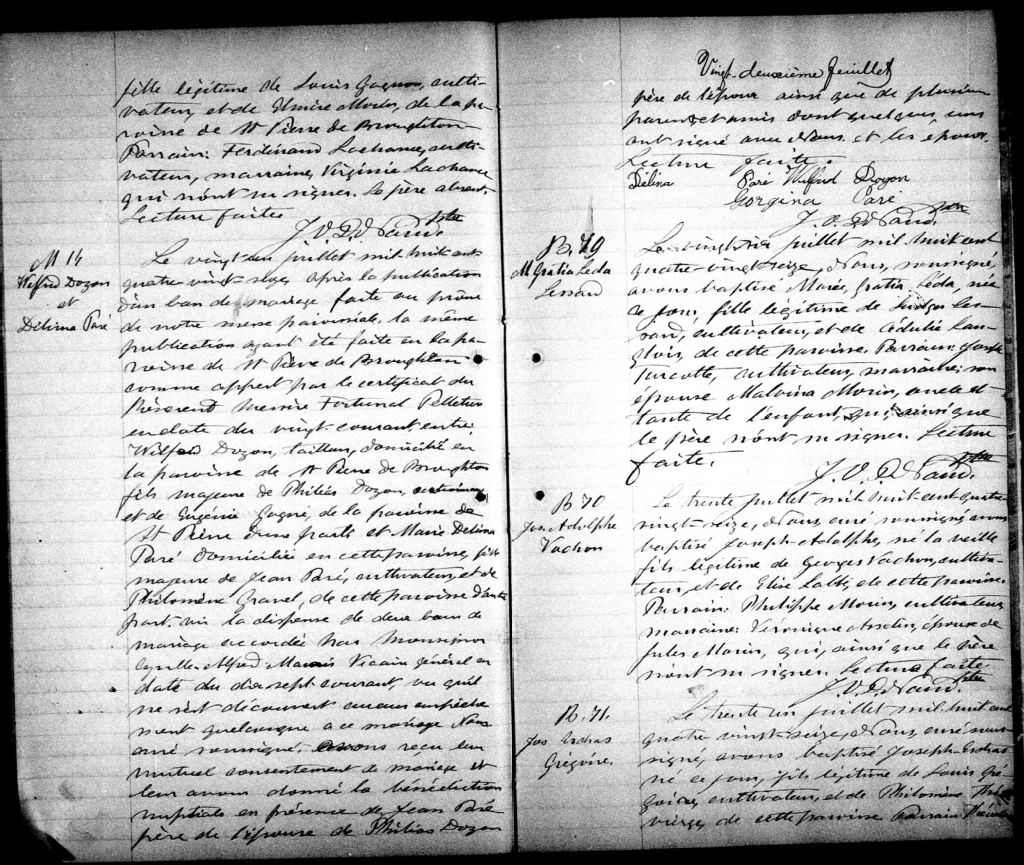 fille légitime de Louis Gagnon, culti-
vateur, et de Elmire Morin, de la pa-
roisse de St Pierre de Broughton
Parrain: Ferdinand Lachance, culti-
vateur, marraine, Virginie Lachance
qui n'ont su signer. Le père absent.
Lecture faite.
J. V. D.
M 14
Wilfred Doyon
et
Délima Paré
Le vingt un juillet mil huit cent
quatre vingt seize, après la publication
d'un ban de mariage faite au prône
de notre messe paroissiale, la même
publication ayant été faite en la pa-
roisse de St Pierre de Broughton
comme appert par le certificat du
Révérend Messire Fortunat Pelletier
en date du vingt courant entre
Wilfred Doyon, tailleur, domicilié en
la paroisse de St Pierre de Broughton
fils majeur de Philias Doyon,
et de Eugénie Gagné, de la paroisse de
St Pierre d'une part; et Marie Délima
Paré domiciliée en cette paroisse, fille
majeure de Jean Paré, cultivateur, et de
Philomène Gravel, de cette paroisse d'autre
part. vu la dispense de deux bans de
mariage accordée par Monseigneur
Cyrille Alfred Marois Vicaire général en
date du dix sept courant, vu qu'il
ne s'est découvert aucun empêche
ment quelconque à ce mariage Nous
curé soussigné avons reçu leur
mutuel consentement de mariage et
leur avons donné la bénédiction
nuptiale en présence de Jean Paré
père de l'épouse de Philias Doyon
Vingt-deuxième feuillet
père de l'époux ainsi que de plusieurs
parents et amis dont quelques uns
ont signé avec Nous et les époux.
Lecture faite.
Délina Paré Wilfrid Doyon
Gorgina Paré
J. V. D.
B. 79
M Gratia Leda
Lessard
Le vingt six juillet mil huit cent
quatre-vingt seize, Nous, soussigné,
avons baptisé Marie, Gratia, Léda, née
ce jour, fille légitime de Les-
sard, cultivateur, et de Cédulie Lan-
glois, de cette paroisse. Parrain: Joseph
Turcotte, cultivateur, marraine: son
épouse Malvina Morin, oncle et
tante de l'enfant, qui, ainsi que
le père n'ont su signer. Lecture
faite.
J. V. D.
B 70
Jos. Adolphe
Vachon
Le trente juillet mil huit cent quatre
vingt-seize, Nous, curé soussigné avons
baptisé Joseph-Adolphe, né la veille
fils légitime de Georges Vachon, cultiva-
teur, et de Elise de cette paroisse.
Parrain: Philippe Morin, cultivateur,
marraine: Véronique Asselin, épouse de
Jules Morin, qui, ainsi que le père
n'ont su signer. Lecture faite.
J. V. D.
B. 71.
Jos Esdras
Grégoire.
Le trente un juillet mil huit cent
quatre vingt-seize, Nous, curé sous-
signé, avons baptisé Joseph-Esdras
né ce jour, fils légitime de Louis Gré-
goire, cultivateur, et de Philomène
de cette paroisse Parrain